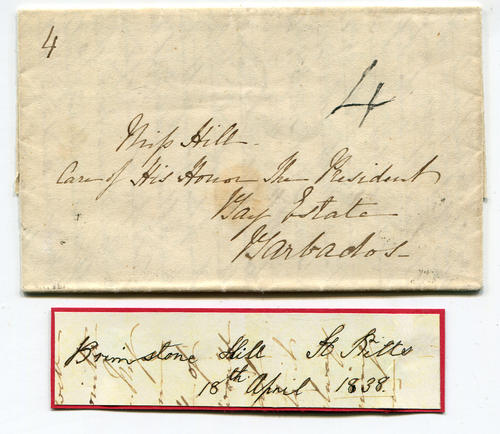 4
4
Miss Hill
Care of His Honor The President
Bay Estate
Barbados
Brimstone Hill St Kitts
18th April 1838.